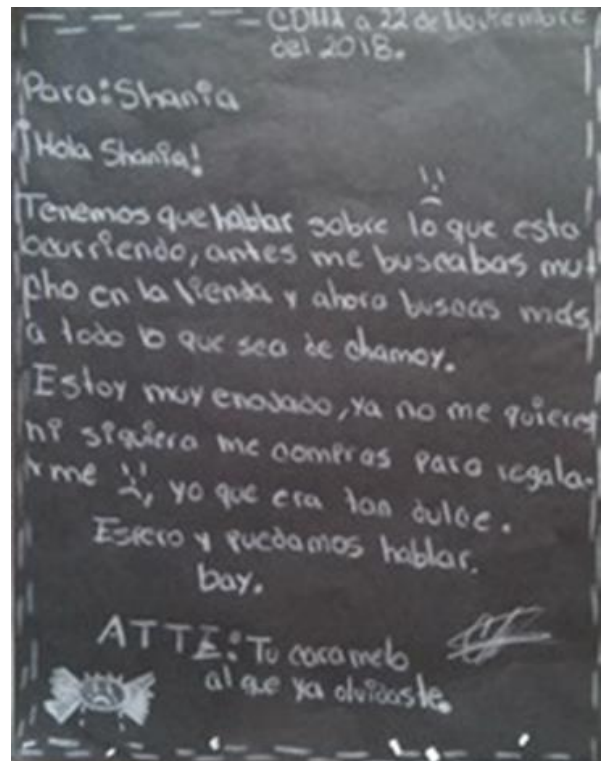 CDMX a 22 de Noviembre
del 2018.
Para: Shania
¡Hola Shania!
Tenemos que hablar sobre lo que esta
ocurriendo, antes me buscabas mu
cho en la tienda y ahora buscas más
a todo lo que sea de chamoy.
Estoy muy enojado, ya no me quieres
ni siquiera me compras para regala-
rme :(, yo que era tan dulce.
Espero y puedamos hablar.
bay.
ATTE: Tu caramelo
al que ya olvidaste.